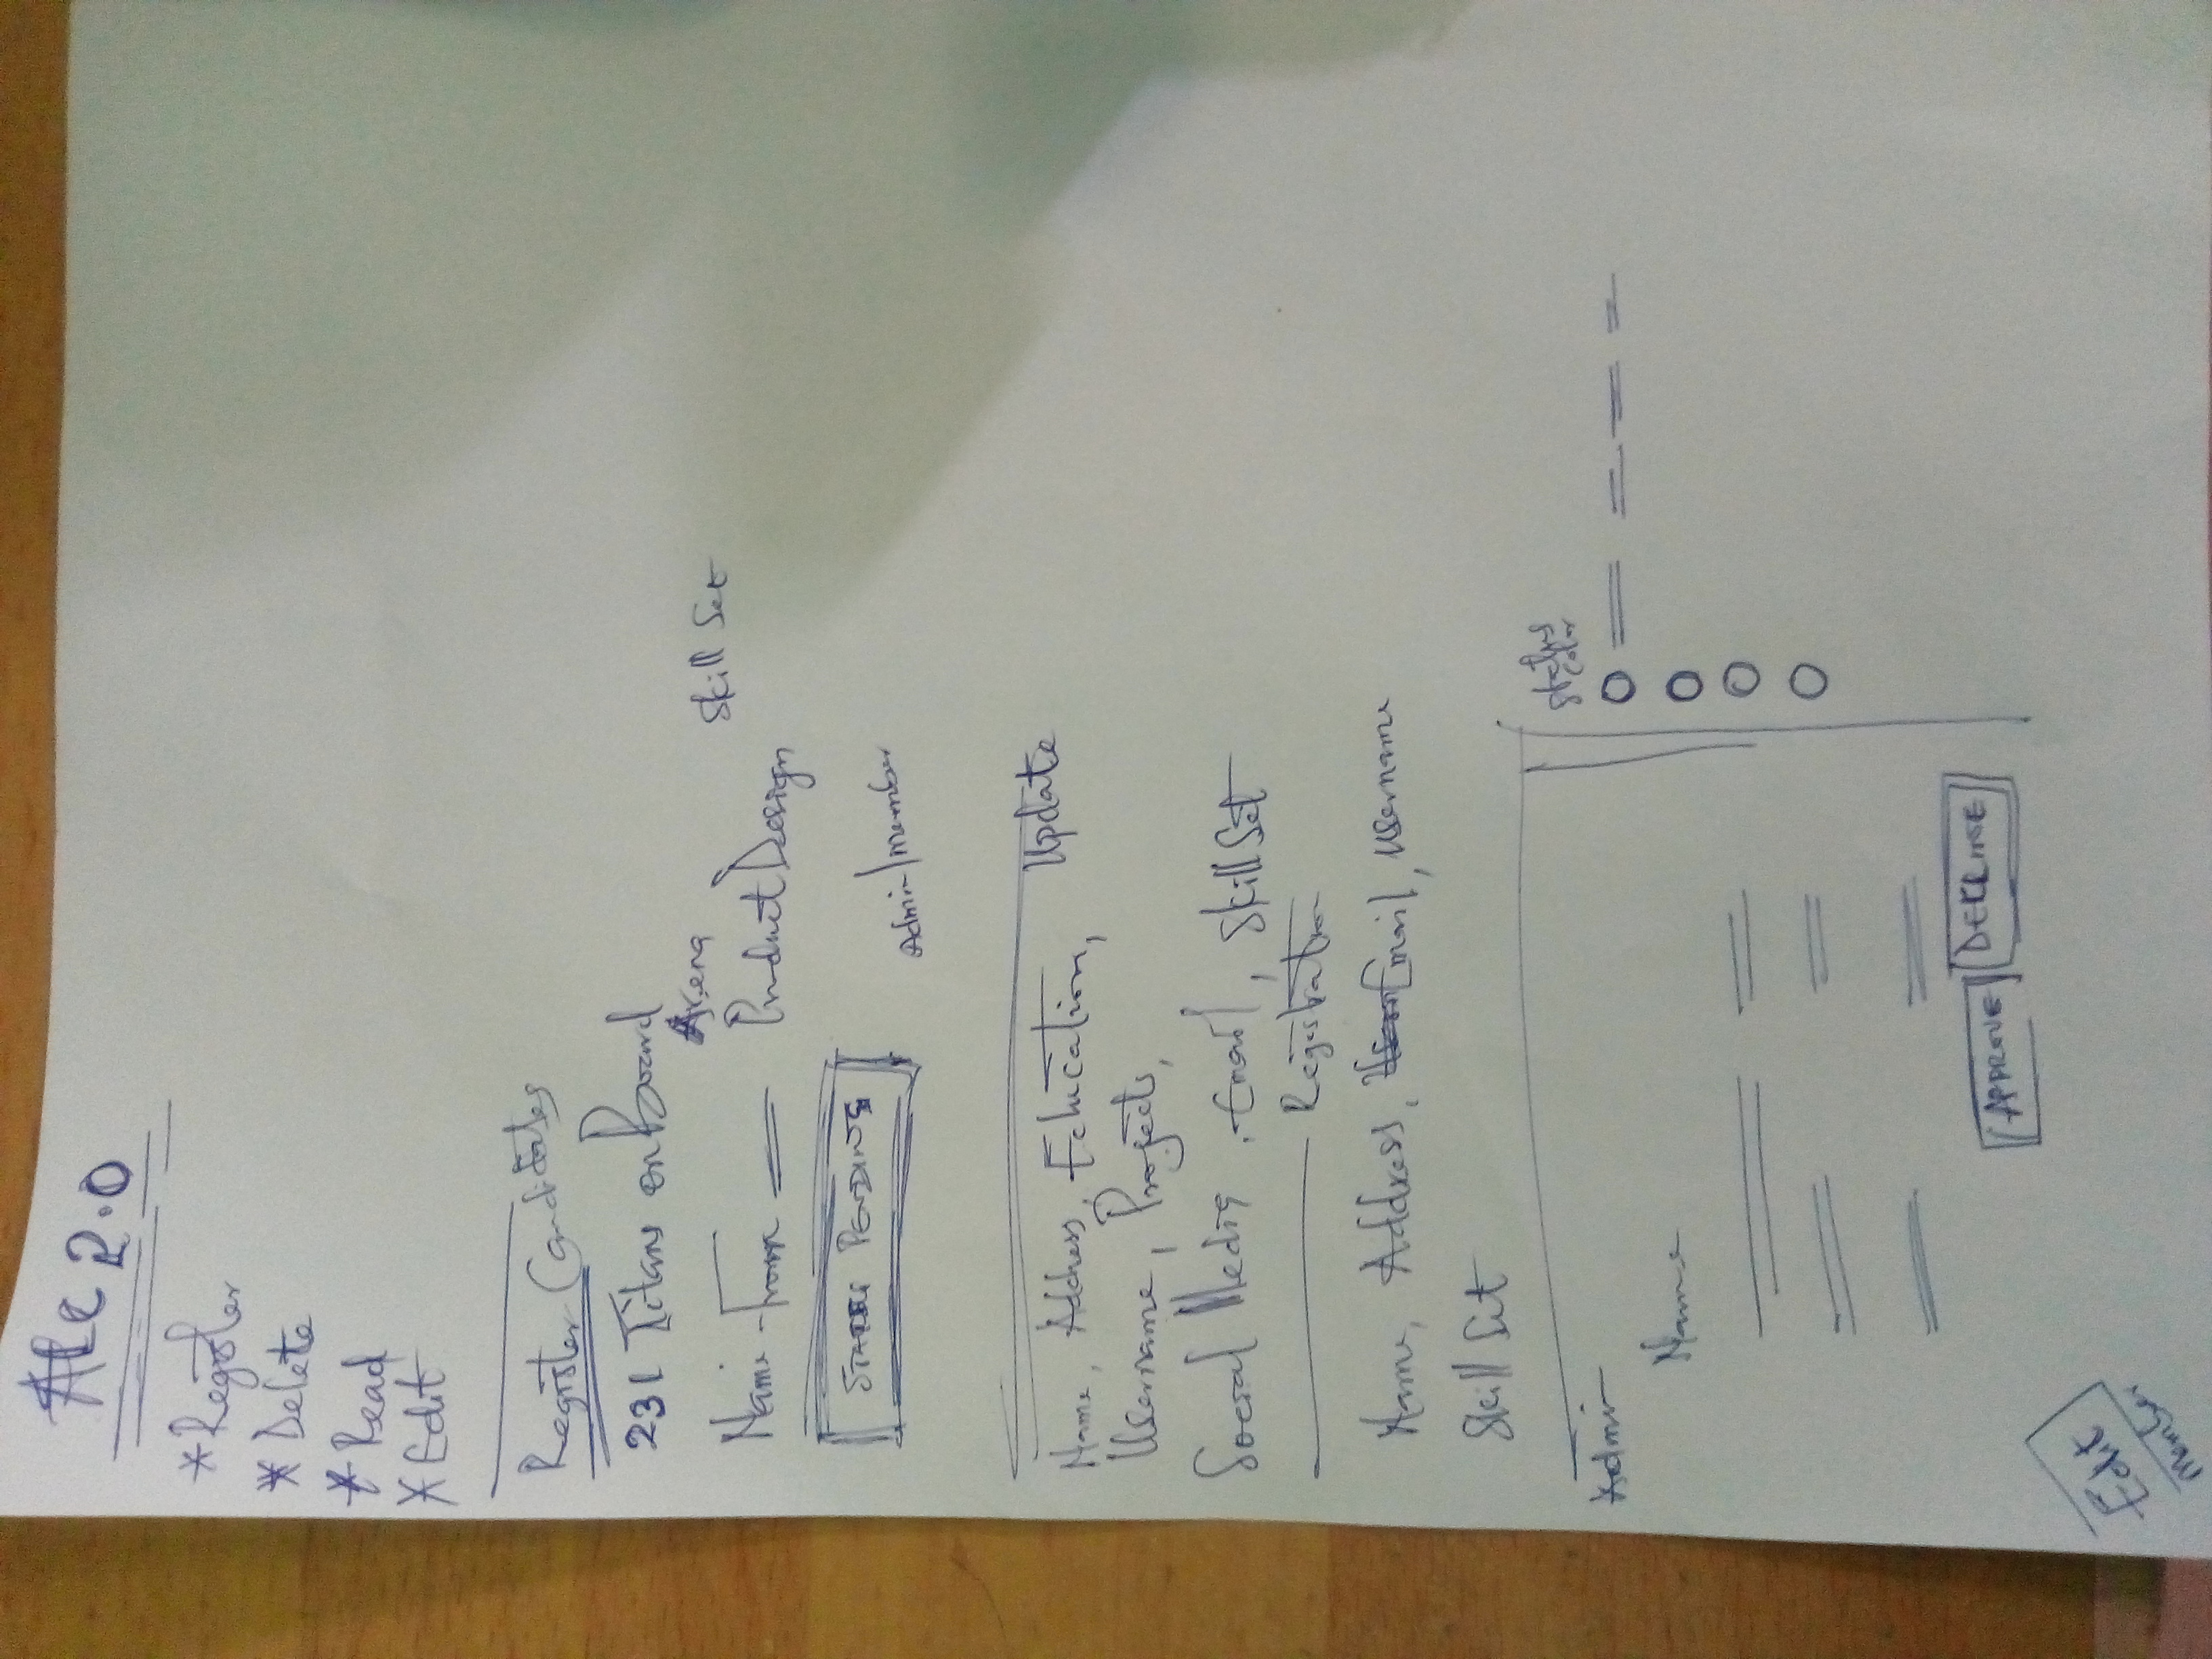 ALC 2.0
* Register
* Delete
* Read
* Edit
Register Candidates
231 Titans on Board
Arena
Skill Set
Name From Product Design
STATUS PENDING
Admin/member
Update
Name, Address, Education,
Username, Projects,
Social Media, Email, Skill Set
Registration
Name, Address, Email, username
Skill Set
Status
color
Admin
Name
APPROVE DECLINE
Edit
member